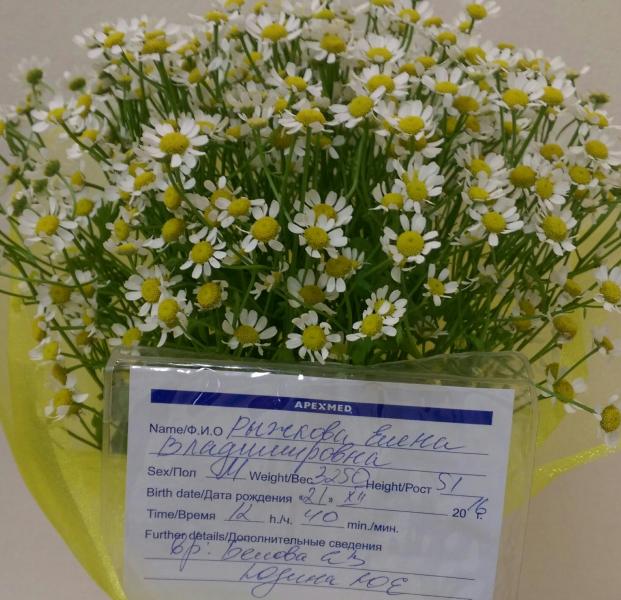 APEXMED
Name/Ф.И.О Рыжкова Елена
Владимировна
Sex/Пол М Weight/Вес 3250 Height/Рост 51
Birth date/Дата рождения «21» XII 2016 г.
Time/Время 12 h./ч. 40 min./мин.
Further details/Дополнительные сведения
вр: Белова СВ
Юдина ЮЕ